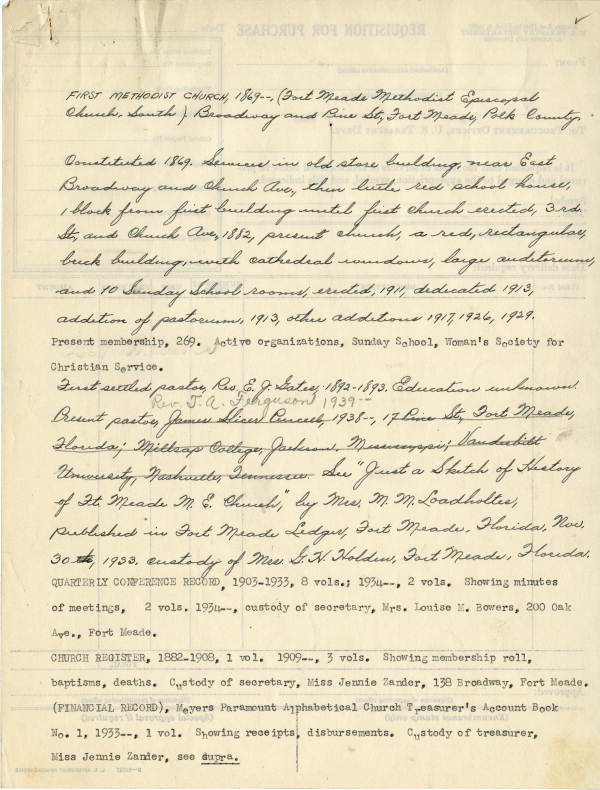 FIRST METHODIST CHURCH, 1869--, (Fort Meade Methodist Episcopal
Church. South), Broadway and Pine St, Fort Meade, Polk County.
Constituted 1869. Services in old store building, near East
Broadway and Church Ave, then little red school house,
1 block from first building until first church erected, 3rd.
St, and Church Ave, 1882, present church, a red, rectangular,
brick building, with cathedral windows, large auditorium,
and 10 Sunday School rooms, erected, 1911, dedicated 1913,
addition of pastorium, 1913, other additions 1917, 1926, 1929.
Present membership, 269. Active organizations, Sunday School, Woman's Society for
Christian Service.
First settled pastor, Rev. E. J. Gates, 1892-1893. Education unknown.
Rev. T. A. Ferguson 1939--
Present pastor, James Slicer Purcell, 1938--, 17 Pine St, Fort Meade,
Florida; Millsap College, Jackson, Mississippi; Vanderbilt
University, Nashville, Tennessee. See "Just a Sketch of History
of Ft. Meade M. E. Church", by Mrs. M. M. Loadholtes,
published in Fort Meade Ledger, Fort Meade, Florida, Nov.
30 th, 1933. custody of Mrs. G. H. Holden, Fort Meade, Florida.
QUARTERLY CONFERENCE RECORD, 1903-1933, 8 vols.; 1934--, 2 vols. Showing minutes
of meetings, 2 vols. 1934--, custody of secretary, Mrs. Louise M. Bowers, 200 Oak
Ave., Fort Meade.
CHURCH REGISTER, 1882-1908, 1 vol. 1909--, 3 vols. Showing membership roll,
baptisms, deaths. Custody of secretary, Miss Jennie Zander, 138 Broadway, Fort Meade.
(FINANCIAL RECORD), Meyers Paramount Alphabetical Church Treasurer's Account Book
No. 1, 1933--, 1 vol. Showing receipts, disbursements. Custody of treasurer,
Miss Jennie Zander, see supra.